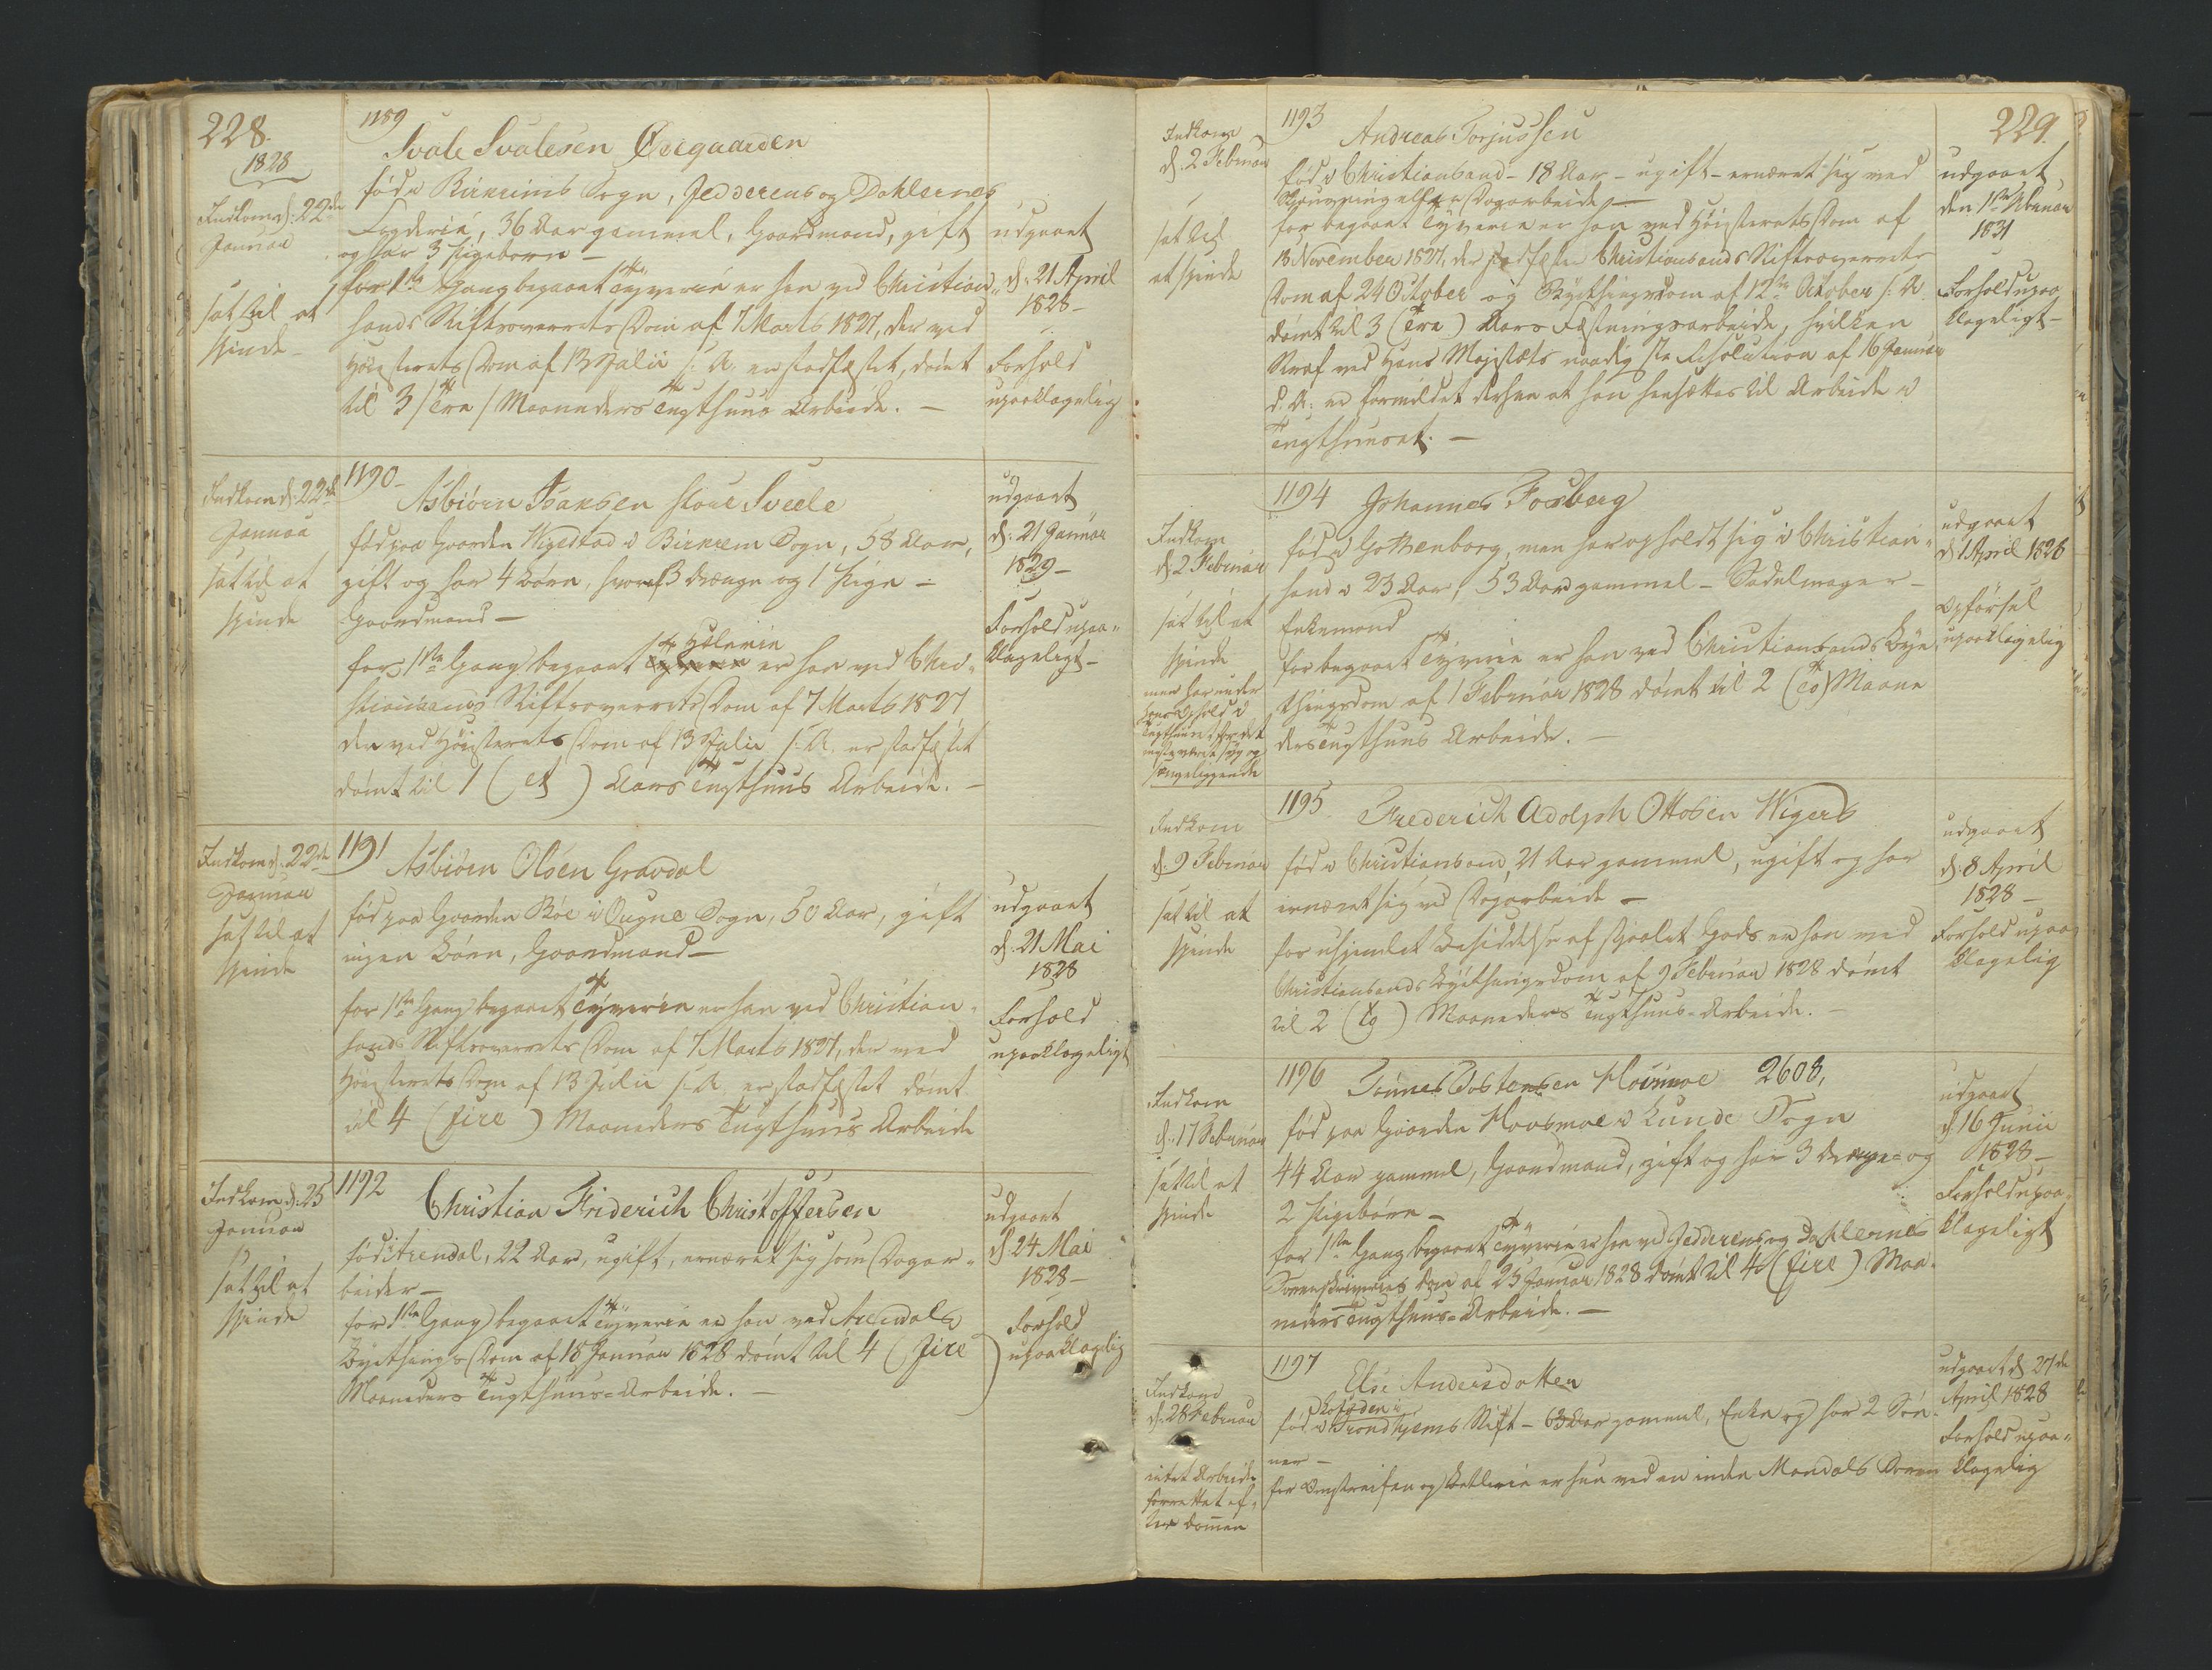 228.
1828
Indkom d: 22de
Januar
sat til at
spinde
1189
Svale Svalesen Øvegaarden
fød i Birkrims Sogn, Jedderens og Dahlernes
Fogderie, 36 Aar gammel, Gaardmand, gift
og har 3 Pigebørn –
for 1ste Gang begaaet Tyverie er han ved Christian-
sands Stiftsoverrets Dom af 7 Marts 1827, der ved
Høiesterets Dom af 13 Julii s: A: er stadfæstet, dømt
til 3 /tre/ Maaneders Tugthuus Arbeide. –
udgaaet
d: 21 April
1828 –
Forhold
upaaklagelig
Indkom d: 22de
Januar
sat til at
spinde
1190 –
Asbiørn Isaksen store Svele
fød paa Gaarden Wigestad i Birkrem Sogn, 58 Aar,
gift og har 4 Børn, hvoraf 3 Drenge og 1 Pige –
Gaardmand –
for 1ste Gang begaaet Hælerie er han ved Chri-
stiansands Stiftsoverrets Dom af 7 Marts 1827
der ved Høiesterets Dom af 13 Julii s: A: er stadfæstet
dømt til 1 (et) Aars Tugthuus Arbeide. –
udgaaet
d: 21 Januar
1829 –
Forhold upaa-
klageligt –
Indkom d: 22de
Januar
sat til at
spinde
1191
Asbiørn Olsen Gravdal
fød paa Gaarden Bøe i Ougne Sogn, 50 Aar, gift
ingen Børn, Gaardmand –
for 1ste Gang begaaet Tyverie er han ved Christian-
sands Stiftsoverrets Dom af 7 Marts 1827, der ved
Høiesterets Dom af 13 Julii s: A: er stadfæstet dømt
til 4 (fire) Maaneders Tugthuus Arbeide
udgaaet
d: 21 Mai
1828
Forhold
upaaklageligt
Indkom d: 25
Januar
sat til at
spinde
1192
Christian Friderich Christoffersen
fød i Arendal, 22 Aar, ugift, ernæret sig som Dagar-
beider –
for 1ste Gang begaaet Tyverie er han ved Arendals
Byethings Dom af 18 Januar 1828 dømt til 4 (fire)
Maaneders Tugthuus-Arbeide. –
udgaaet
d: 24 Mai
1828 –
Forhold
upaaklagelig
229.
Indkom
d: 2 Februar
sat til
at spinde
1193
Andreas Torjussen
fød i Christiansand – 18 Aar – ugift – ernæret sig ved
Dagarbeide –
for begaaet Tyverie er han ved Høiesterets Dom af
November 1827, der stadfæster Christiansands Stiftsoverrets
Dom af 24 October og Byethingsdom af 12te October s: A:
dømt til 3 (tre) Aars Fæstningsarbeide, hvilken
Straf ved Hans Majestæts naadigste Resolution af 16 Januar
d: A: er formildet derhen at han hensættes til Arbeide i
Tugthuuset. –
udgaaet
den 1ste Februar
1831
Forhold upaa-
klageligt –
Indkom
d: 2 Februar
sat til at
spinde
men har under
hans Ophold i
Tugthuuset for det
meste været syg og
sengeliggende
1194
Johannes Forsberg
fød i Gothenborg, men har opholdt sig i Christian-
sand i 23 Aar, 53 Aar gammel – Sadelmager –
Enkemand
for begaaet Tyverie er han ved Christiansands Bye-
thingsdom af 1 Februar 1828 dømt til 2 (to) Maane
ders Tugthuus Arbeide. –
udgaaet
d: 1 April 1828
Opførsel
upaaklagelig
Indkom
d: 9 Februar
sat til at
spinde
1195
Frederich Adolph Ottosen Wigers
fød i Christiansand, 21 Aar gammel, ugift og har
ernæret sig ved Dagarbeide –
for uhjemlet Besiddelse af stjaalet Gods er han ved
Christiansands Byethingsdom af 9 Februar 1828 dømt
til 2 (to) Maaneders Tugthuus-Arbeide. –
udgaaet
d: 8 April
1828 –
Forhold upaa-
klagelig
Indkom
d: 17 Februar
sat til at
spinde
1196
Tønnes Tostensen Hovsmoe 2608,
fød paa Gaarden Hovsmoe i Lunde Sogn
44 Aar gammel, Gaardmand, gift og har 3 Drenge- og
2 Pigebørn –
for 1ste Gang begaaet Tyverie er han ved Jedderens og Dahlernes
Sorenskriveries Dom af 25 Januar 1828 dømt til 4 (fire) Maa-
neders Tugthuus-Arbeide. –
udgaaet
d: 16 Junii
1828 –
Forhold upaa-
klageligt
Indkom
d: 28 Februar
intet Arbeide
forrettet ef-
ter Dommen
1197
Else Andersdatter
fød i Trondhjems Stift – 63 Aar gammel, Enke og har 2 Søn-
ner –
for Omstreifen og Betlerie er hun ved en inden Mandals Soren
udgaaet d: 27de
April 1828
Forhold upaa-
klagelig